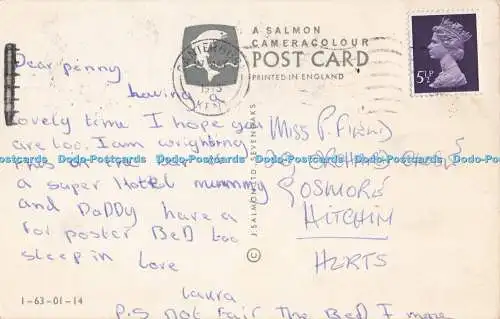 A SALMON
CAMERACOLOUR
POST CARD
PRINTED IN ENGLAND
5½P
1975
KENT
Dear penny
having a
Lovely time I hope you
are too. I am wrighting
this on the
a super Hotel mummy
and DaDDy have a
for poster BeD too
sleep in Love
Laura
P.S not Fair The BeD I mene
Miss P. Field
ORCHARD
GOSMORE
HITCHIN
HERTS
© J. SALMON LTD. SEVENOAKS
1-63-01-14
Postcards Dodo-Postcards Dodo-Postcards Dodo-Postcards Dodo-Postcards Dodo-Postcards